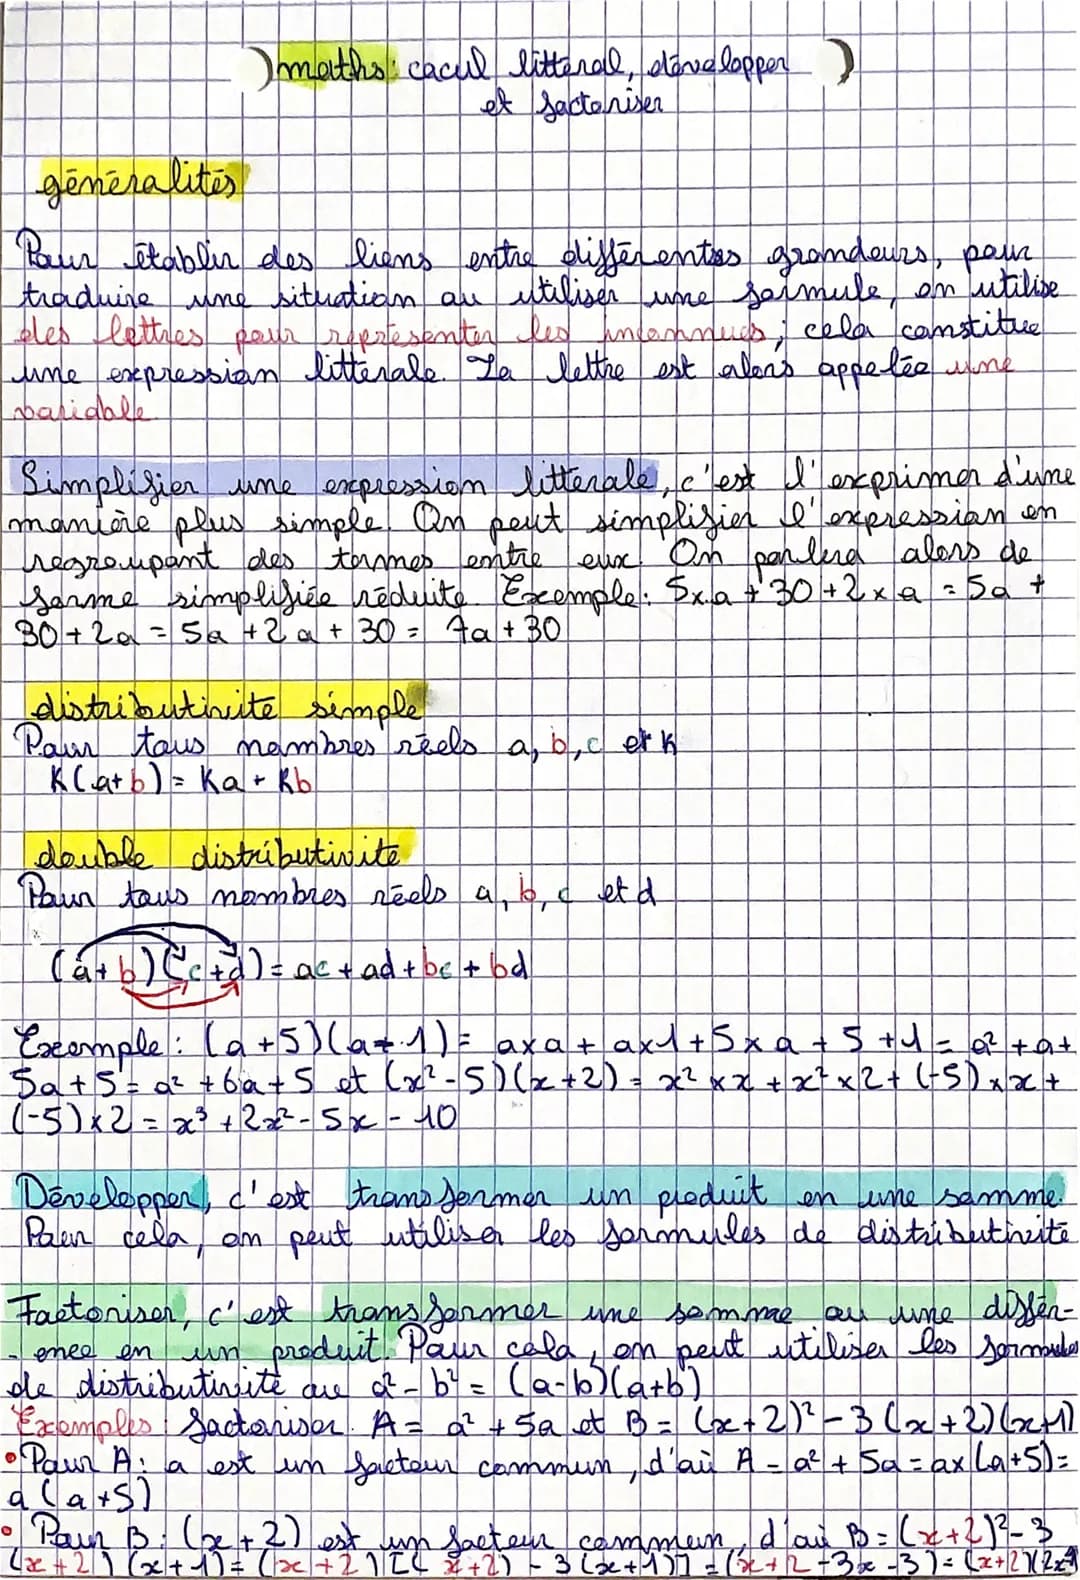 maths: cacul littéral, développer
et factoriser
généralités
Pour établir des liens entre différentes grandeurs, pour
traduire une situation ou utiliser une formule, on utilise
des lettres pour représenter les inconnues; cela constitue
une expression littérale. La lettre est alors appelée une
variable
Simplifier une expression littérale, c'est l'exprimer d'une
manière plus simple. On peut simplifier l'expression en
regroupant des termes entre eux. On parlera alors de
forme simplifiée réduite. Exemple: 5×a + 30 + 2×a = 5a +
30 + 2a = 5a + 2a + 30 = 7a + 30
distributivité simple
Pour tous nombres réels a, b, c et k
K(a+b) = Ka + Kb
double distributivité
Pour tous nombres réels a, b, c et d
(a+b)(c+d) = ac + ad + bc + bd
Exemple: (a+5)(a+1) = a×a + a×1 + 5×a + 5 + 1 = a² + a +
5a + 5 = a² + 6a + 5 et (x²-5)(x+2) = x² × x + x² × 2 + (-5) × x +
(-5) × 2 = x³ + 2x² - 5x - 10
Développer, c'est transformer un produit en une somme.
Pour cela, on peut utiliser les formules de distributivité
Factoriser, c'est transformer une somme ou une différ-
-ence en un produit. Pour cela, on peut utiliser les formules
de distributivité ou a² - b² = (a-b)(a+b)
Exemples: factoriser. A = a² + 5a et B = (x+2)² - 3(x+2)(x+1)
• Pour A: a est un facteur commun, d'où A = a² + 5a = a×(a+5) =
a(a+5)
• Pour B: (x+2) est un facteur commun, d'où B = (x+2)² - 3
(x+2)(x+1) = (x+2)[(x+2) - 3(x+1)] = (x+2-3x-3) = (x+2)(2x